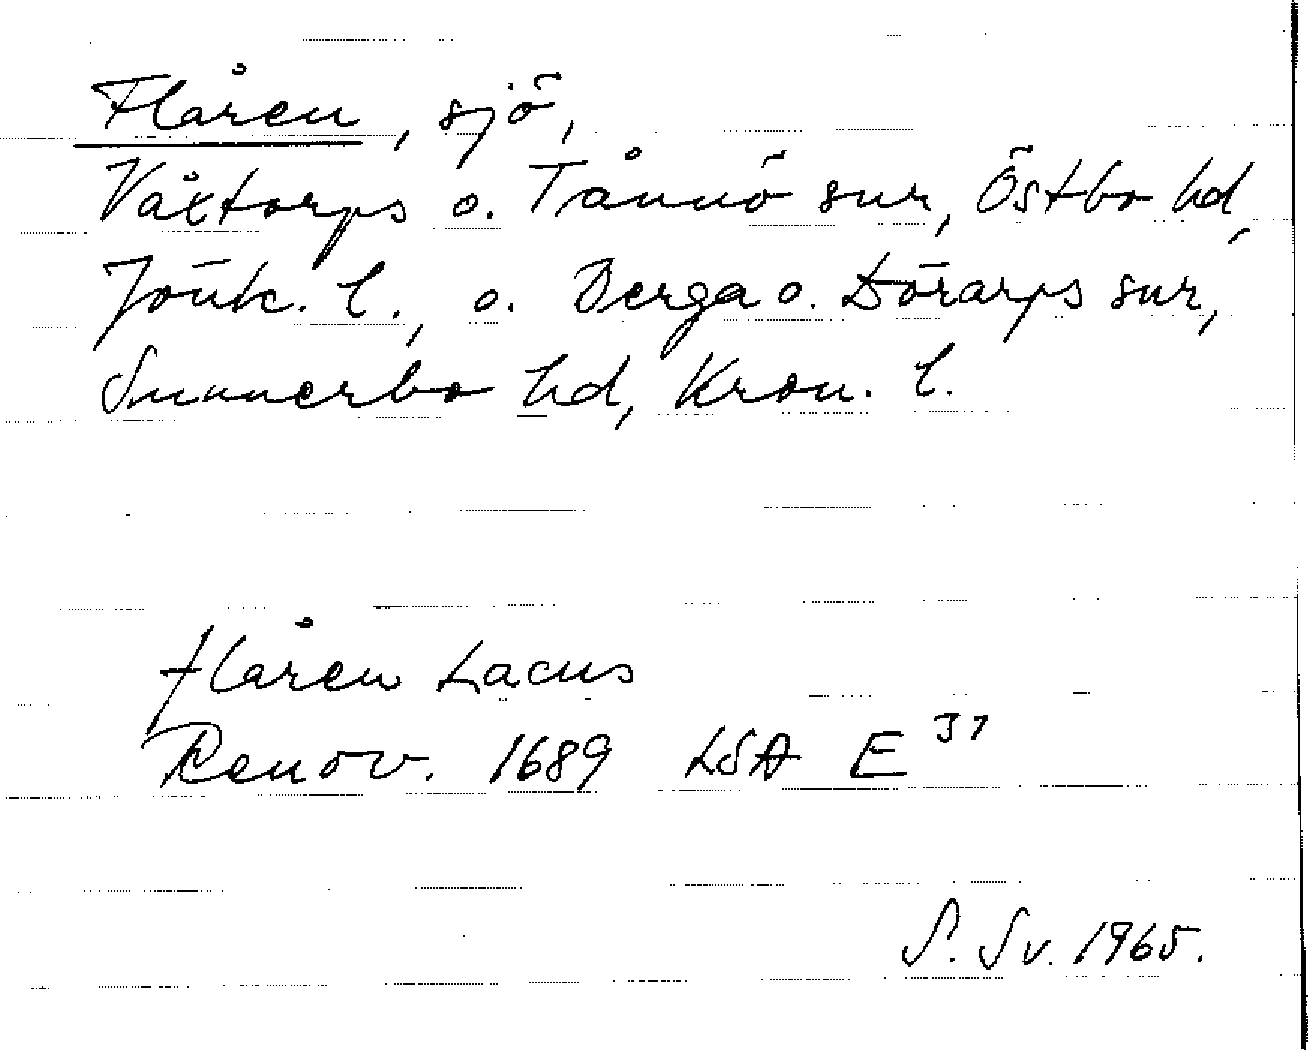 Flåren, sjö,
Våxtorps o. Tånnö snr, Östbo hd,
Jönk. l., o. Berga o. Dörarps snr,
Sunnerbo hd, Kron. l.
Flåren Lacus
Renov. 1689 LSA E 31
S. Sv. 1965.